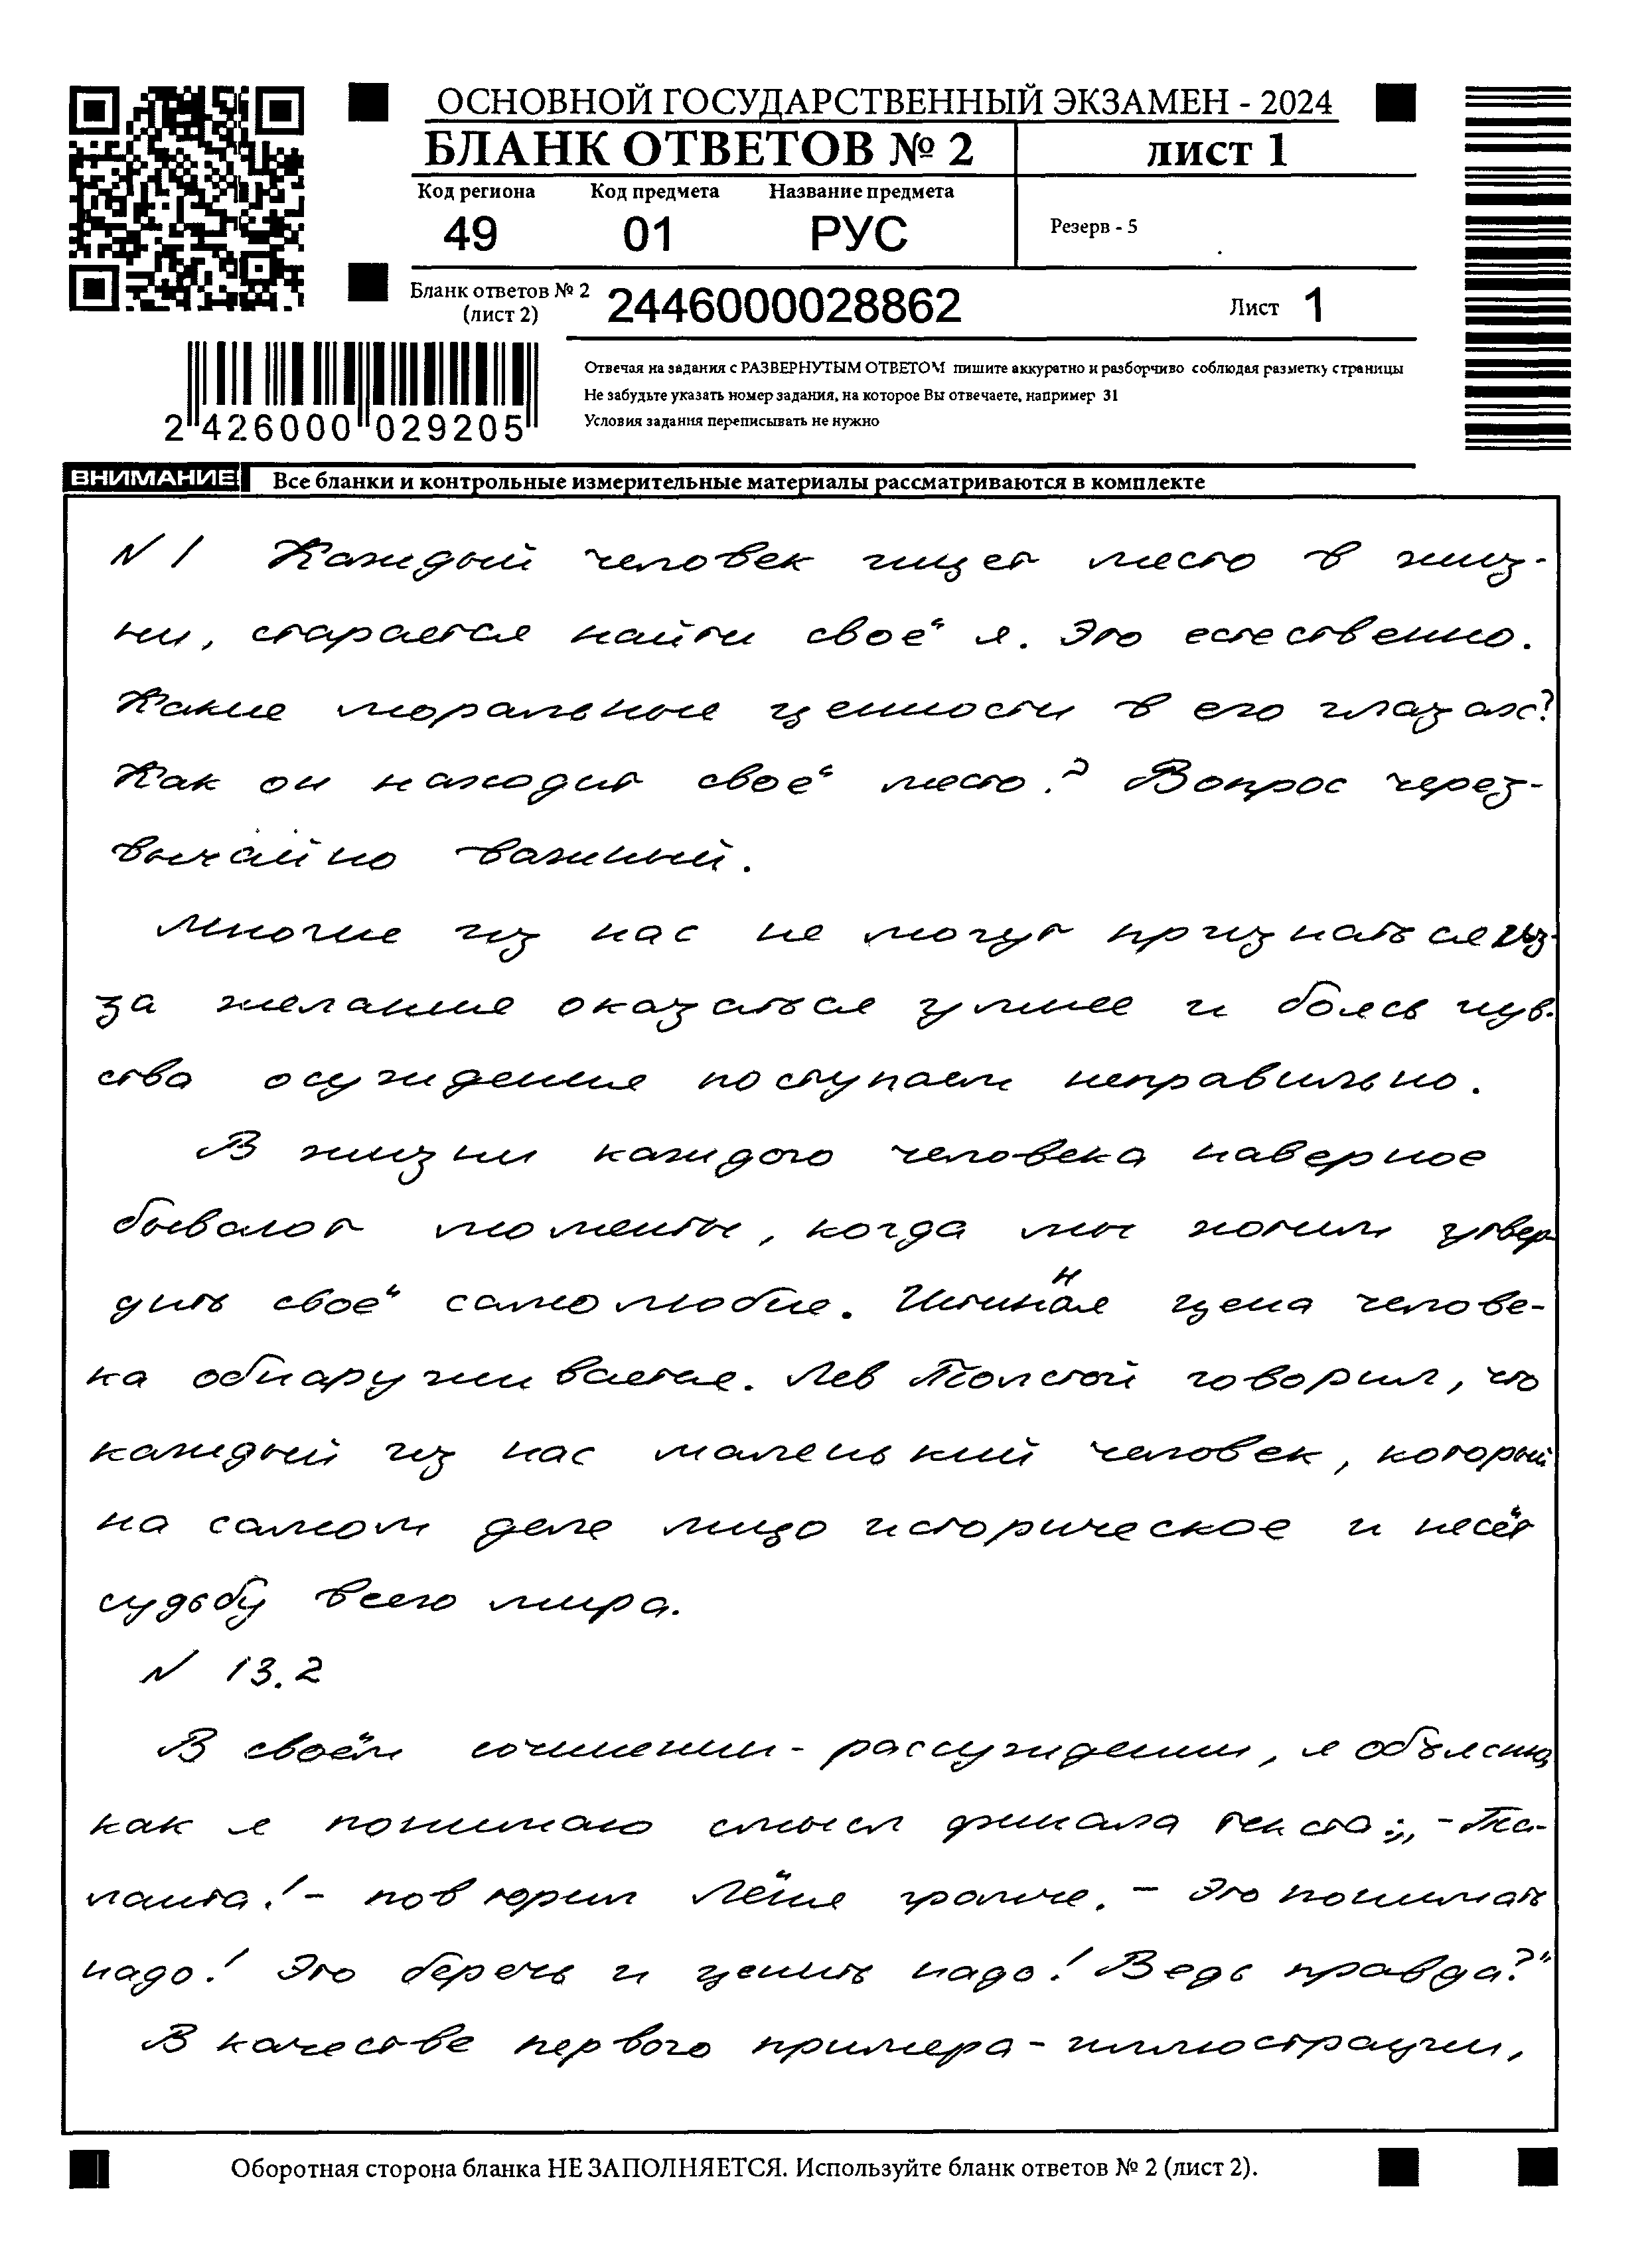 ОСНОВНОЙ ГОСУДАРСТВЕННЫЙ ЭКЗАМЕН - 2024
БЛАНК ОТВЕТОВ № 2
ЛИСТ 1
Код региона
Код предмета
Название предмета
49
01
РУС
Резерв - 5
Бланк ответов № 2
(лист 2)
2446000028862
Лист 1
2 426000 029205
Отвечая на задания с РАЗВЕРНУТЫМ ОТВЕТОМ пишите аккуратно и разборчиво соблюдая разметку страницы
Не забудьте указать номер задания, на которое Вы отвечаете, например 31
Условия задания переписывать не нужно
ВНИМАНИЕ!
Все бланки и контрольные измерительные материалы рассматриваются в комплекте
N 1 Каждый человек ищет место в жиз-
ни, старается найти своё я. Это естественно.
Какие моральные ценности в его глазах?
Как он находит своё место? Вопрос через-
вычайно важный.
Многие из нас не могут признаться из-
за желание оказаться умнее и боясь чув-
ства осуждения поступаем неправильно.
В жизни каждого человека наверное
бывают моменты, когда мы хотим утвер-
дить своё самолюбие. Истинная цена челове-
ка обнаруживается. Лев Толстой говорил, что
каждый из нас маленький человек, который
на самом деле лицо историческое и несёт
судьбу всего мира.
N 13.2
В своём сочинении-рассуждении, я объясню,
как я понимаю смысл финала текста: „-Та-
ланта! - повторил Лёше громче. - Это понимать
надо! Это беречь и ценить надо! Ведь правда?"
В качестве первого примера-иллюстрации,
Оборотная сторона бланка НЕ ЗАПОЛНЯЕТСЯ. Используйте бланк ответов № 2 (лист 2).